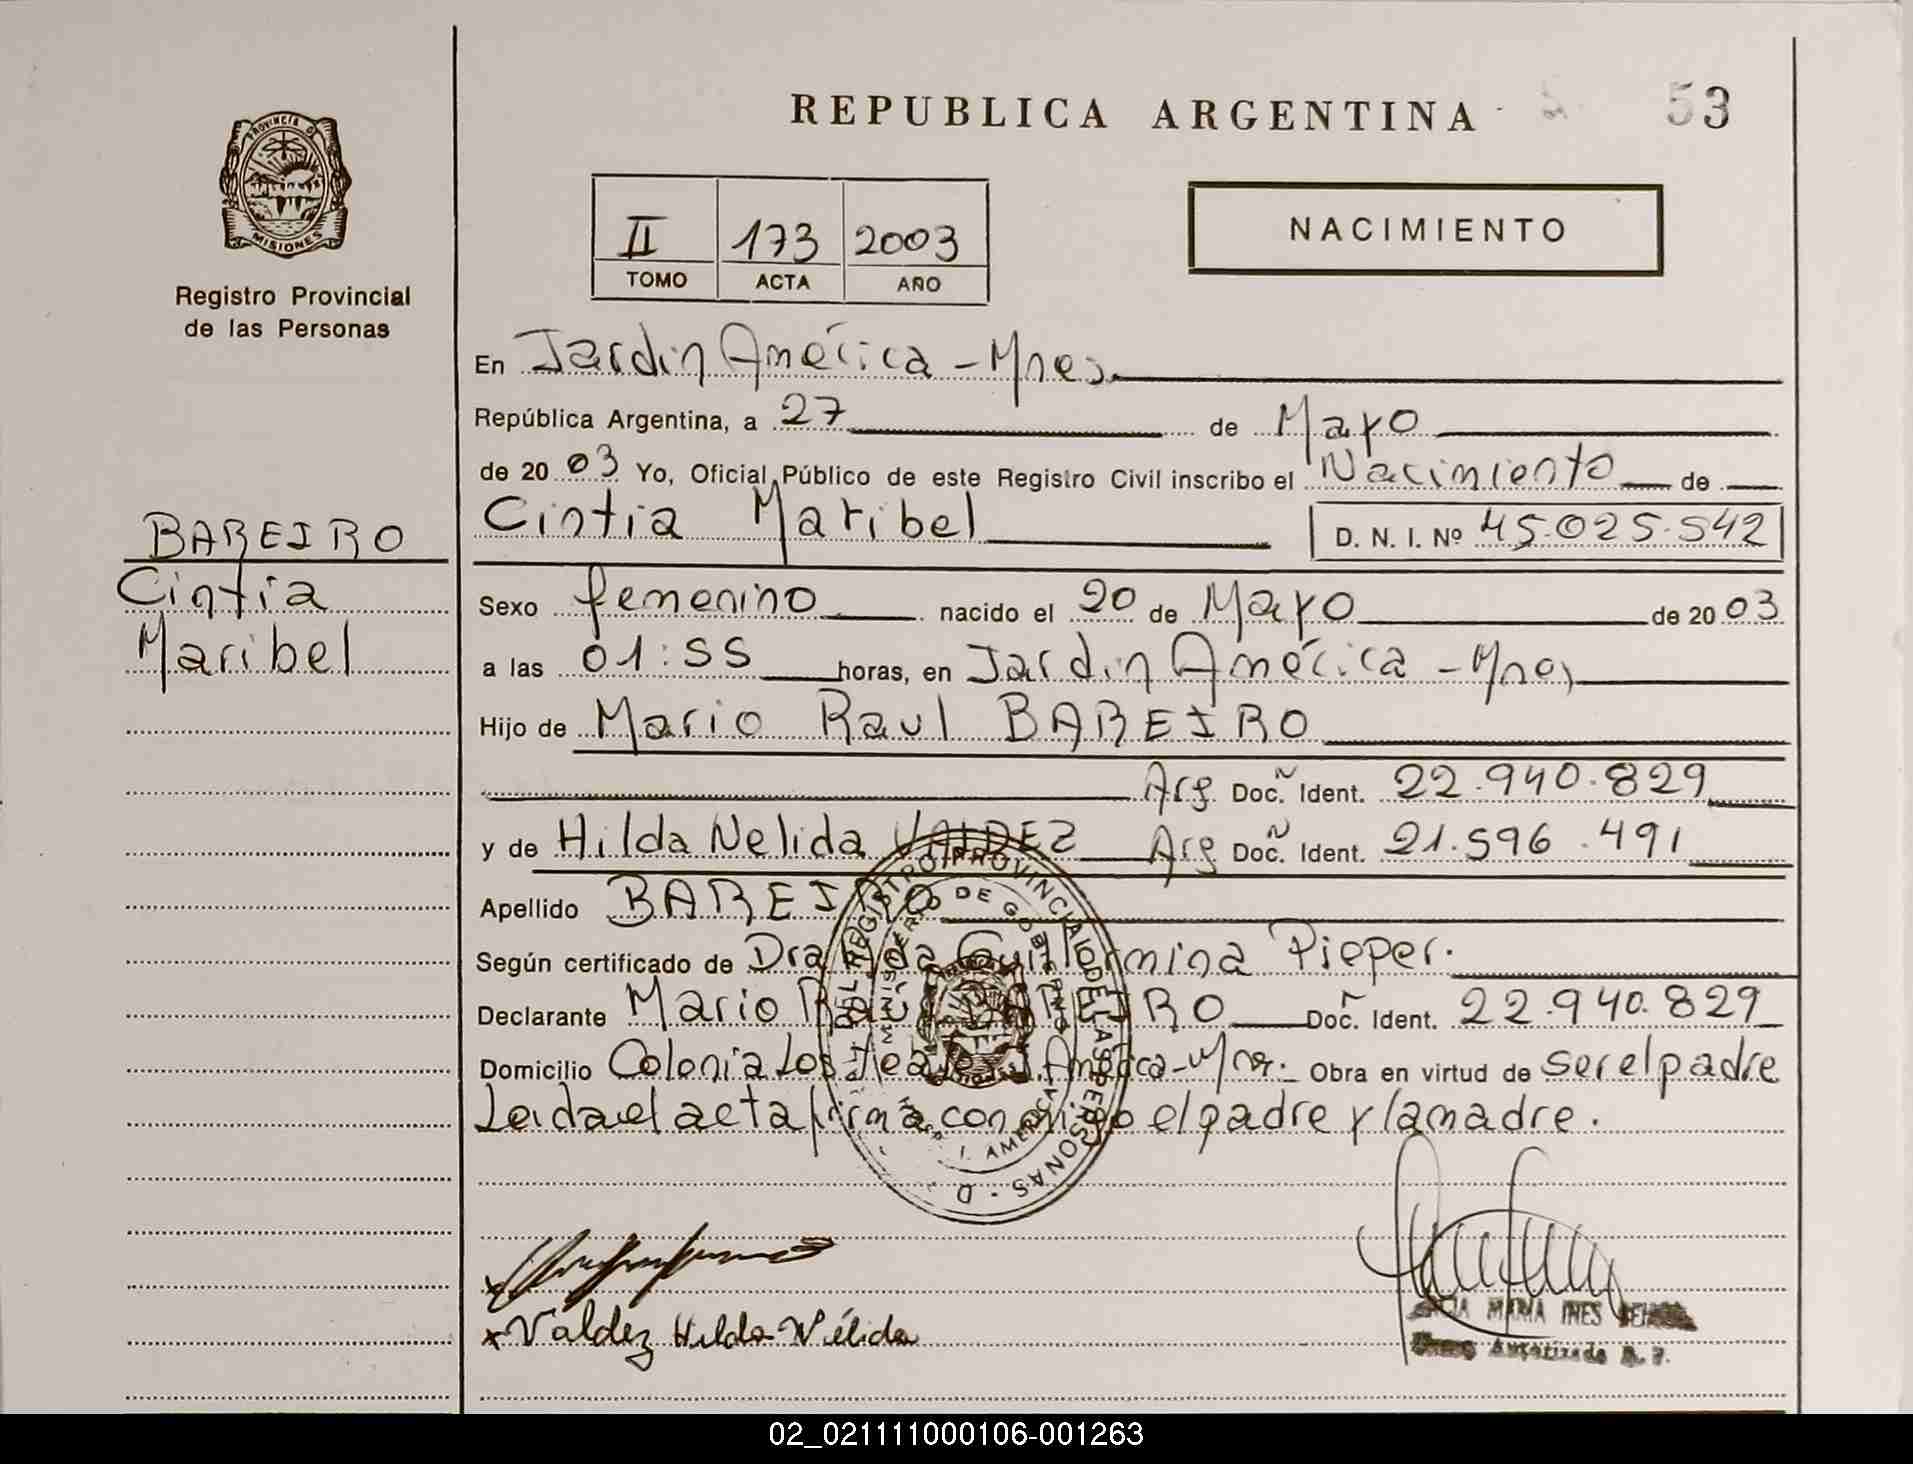 REPUBLICA ARGENTINA
53
PROVINCIA D
MISIONES
Registro Provincial
de las Personas
II 173 2003
TOMO ACTA AÑO
NACIMIENTO
En Jardin América - Mnes.
República Argentina, a 27 de Mayo
de 20 03 Yo, Oficial Público de este Registro Civil inscribo el Nacimiento de
Cintia Maribel D. N. I. Nº 45.025.542
BAREIRO
Cintia
Maribel
Sexo femenino nacido el 20 de Mayo de 20 03
a las 01:55 horas, en Jardin América - Mnes
Hijo de Mario Raul BAREIRO
Arg. Doc. Ident. 22.940.829
y de Hilda Nelida VALDEZ Arg Doc. Ident. 21.596.491
Apellido BAREIRO
Según certificado de Dra Guillermina Pieper.
Declarante Mario Raul BAREIRO Doc. Ident. 22.940.829
Domicilio Colonia Los J. América - Mnes. Obra en virtud de ser el padre
Leida el acta firma conmigo el padre y la madre.
DEL REGISTRO PROVINCIAL DE LAS PERSONAS - D
MINISTERIO DE GOBIERNO
J. AMERICA
x Valdez Hilda Nélida
MARIA INES
Autorizado R. P.
02_021111000106-001263